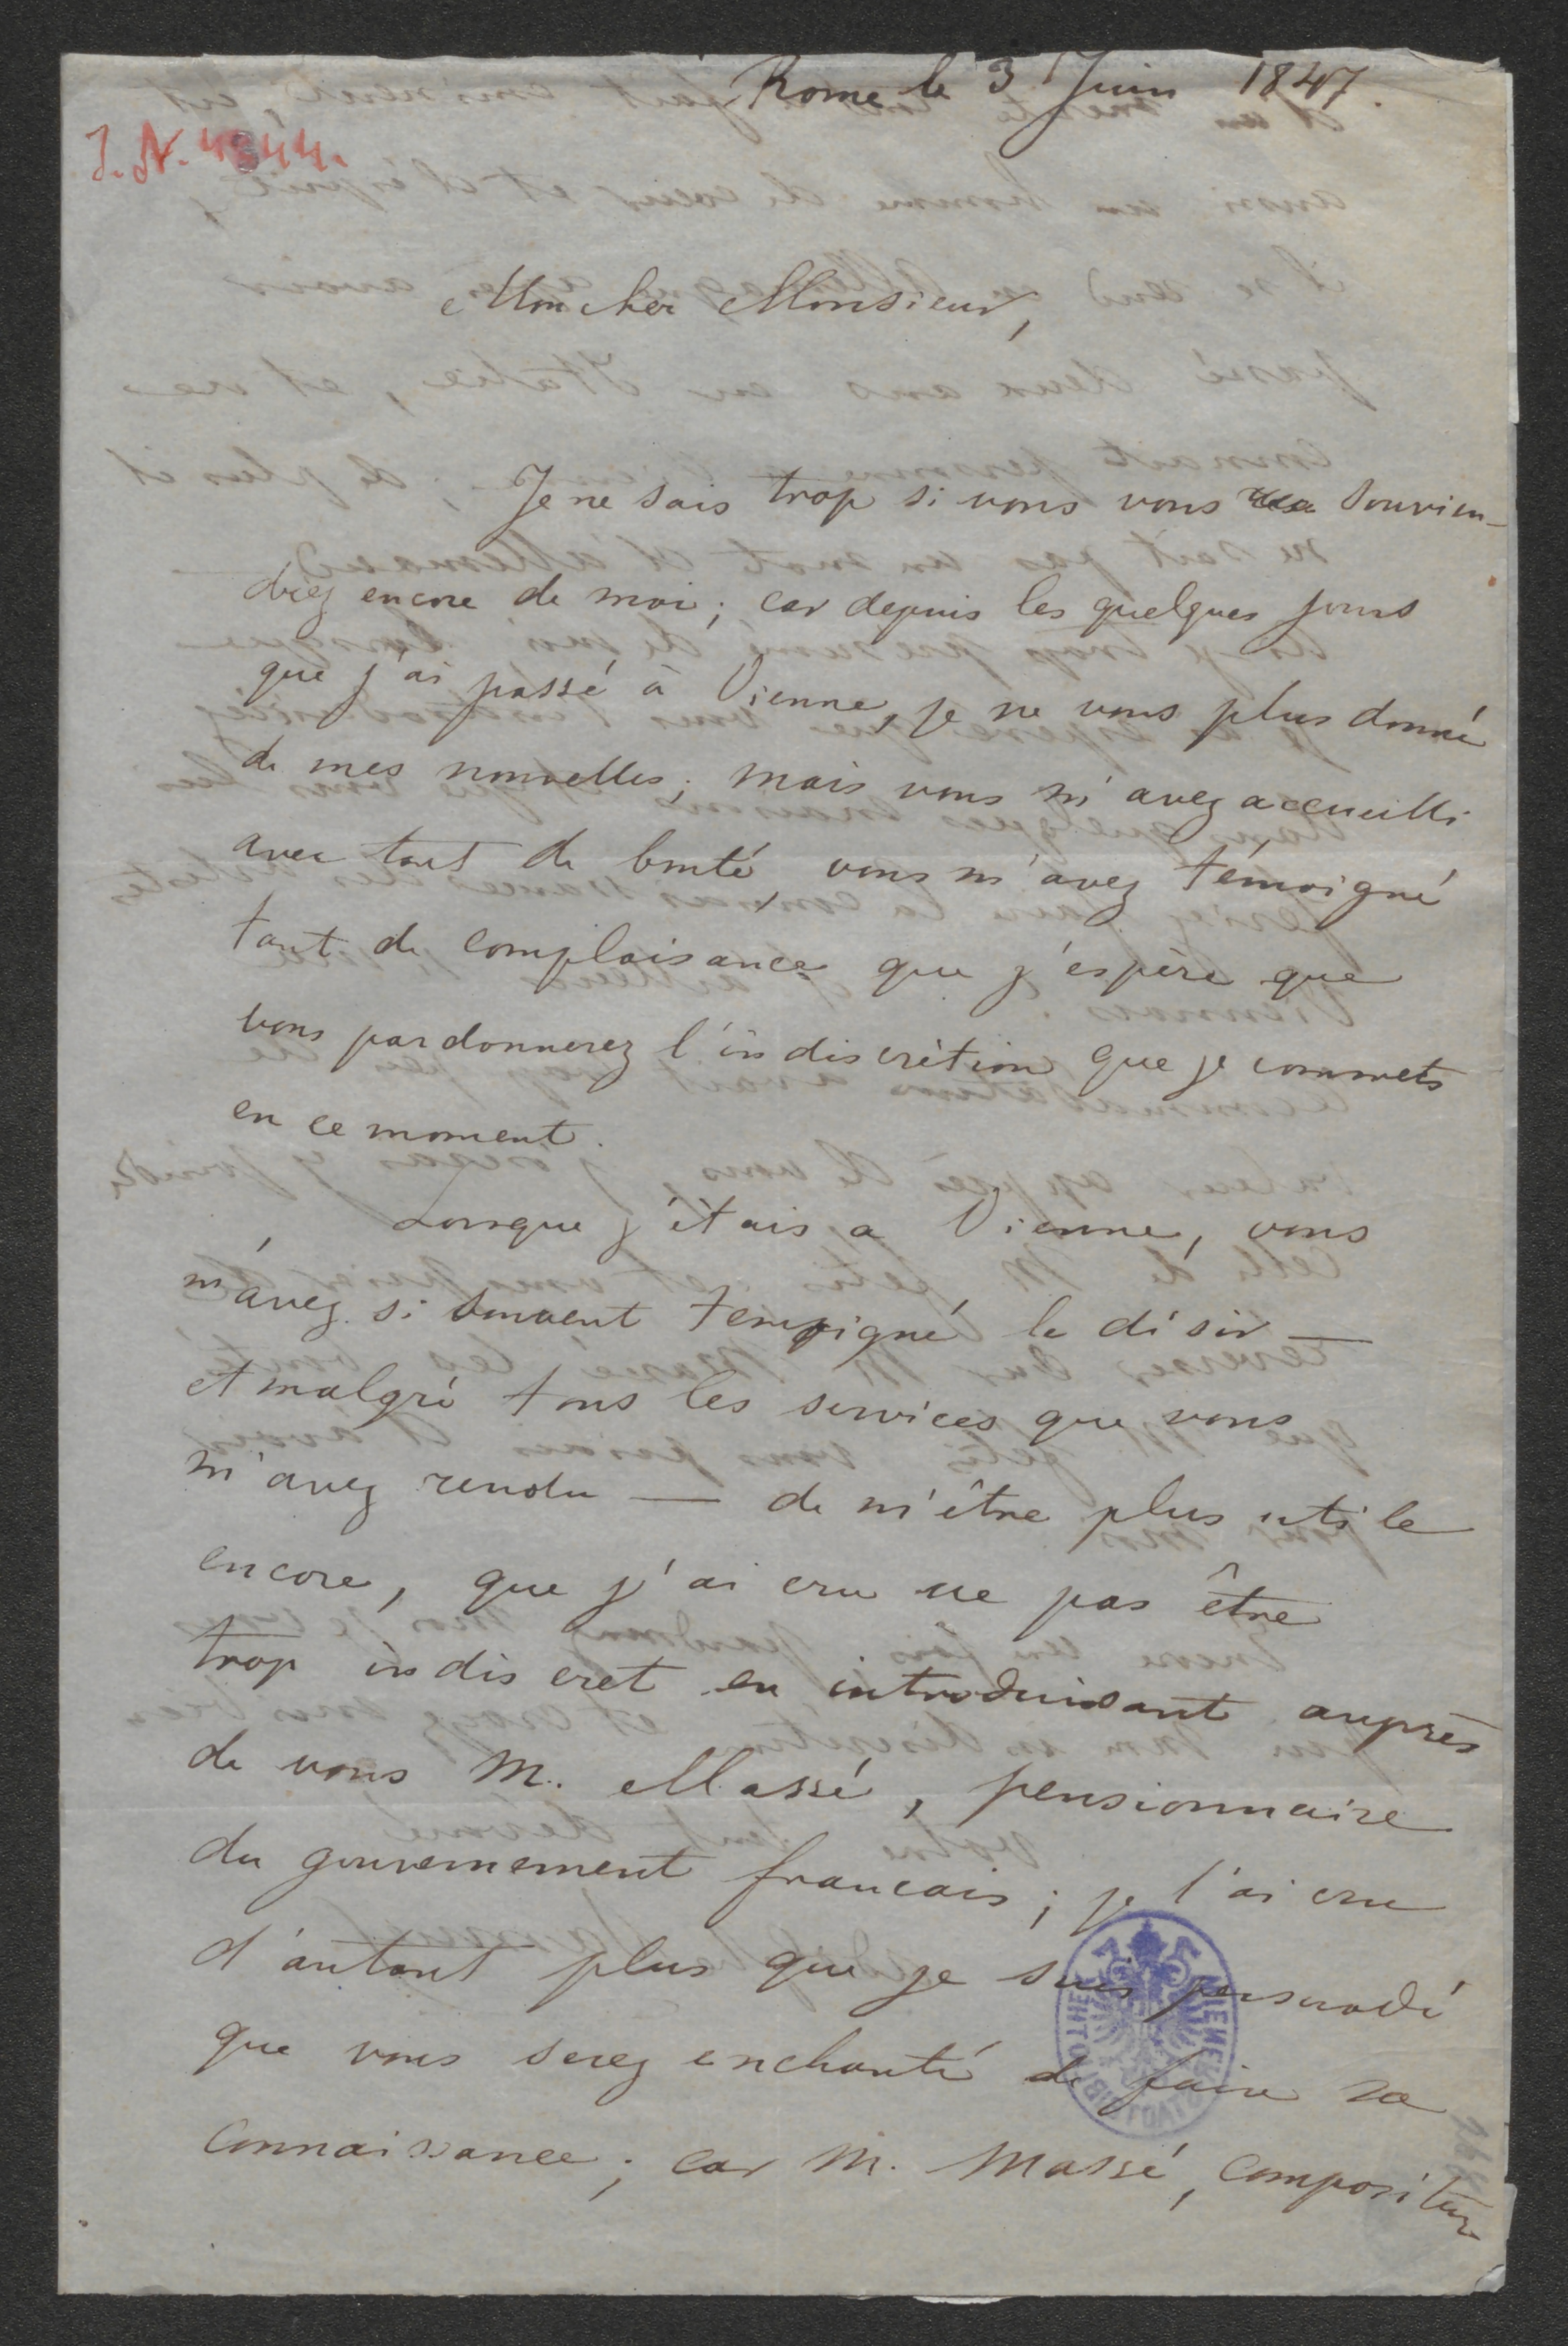 Rome le 3 Juin 1847.
J. N. 4844.
Mon cher Monsieur,
Je ne sais trop si vous vous souvien-
driez encore de moi; car depuis les quelques jours
que j'ai passé à Vienne, je ne vous plus donné
de mes nouvelles; mais vous m'avez accueilli
avec tant de bonté, vous m'avez témoigné
tant de complaisance que j'éspère que
vous pardonnerez l'indiscrétion que je commets
en ce moment.
Lorsque j'étais a Vienne, vous
m'avez si souvent temoigné le désir —
et malgré tous les services que vous
m'avez rendu — de m'être plus utile
encore, que j'ai cru ne pas être
trop indiscret en introduisant auprès
de vous M. Massé, pensionnaire
du gouvernement francais; je l'ai cru
d'autant plus que je suis persuadé
que vous serez enchanté de faire sa
connaissance; car M. Massé, compositeur